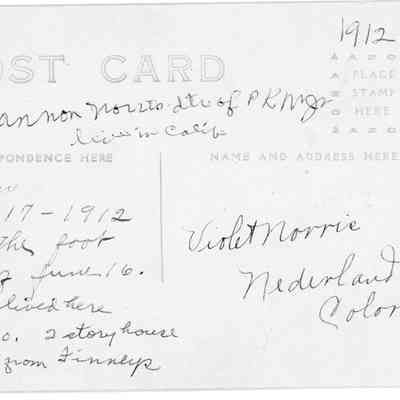 1912
OST CARD
A
PLACE
STAMP
HERE
annon Norris dtr of P K Mgr
live in Calif
PONDENCE HERE
NAME AND ADDRESS HERE
17-1912
the foot
June 16.
lived here
o. 2 story house
from Finneys
Violet Norris
Nederland
Color